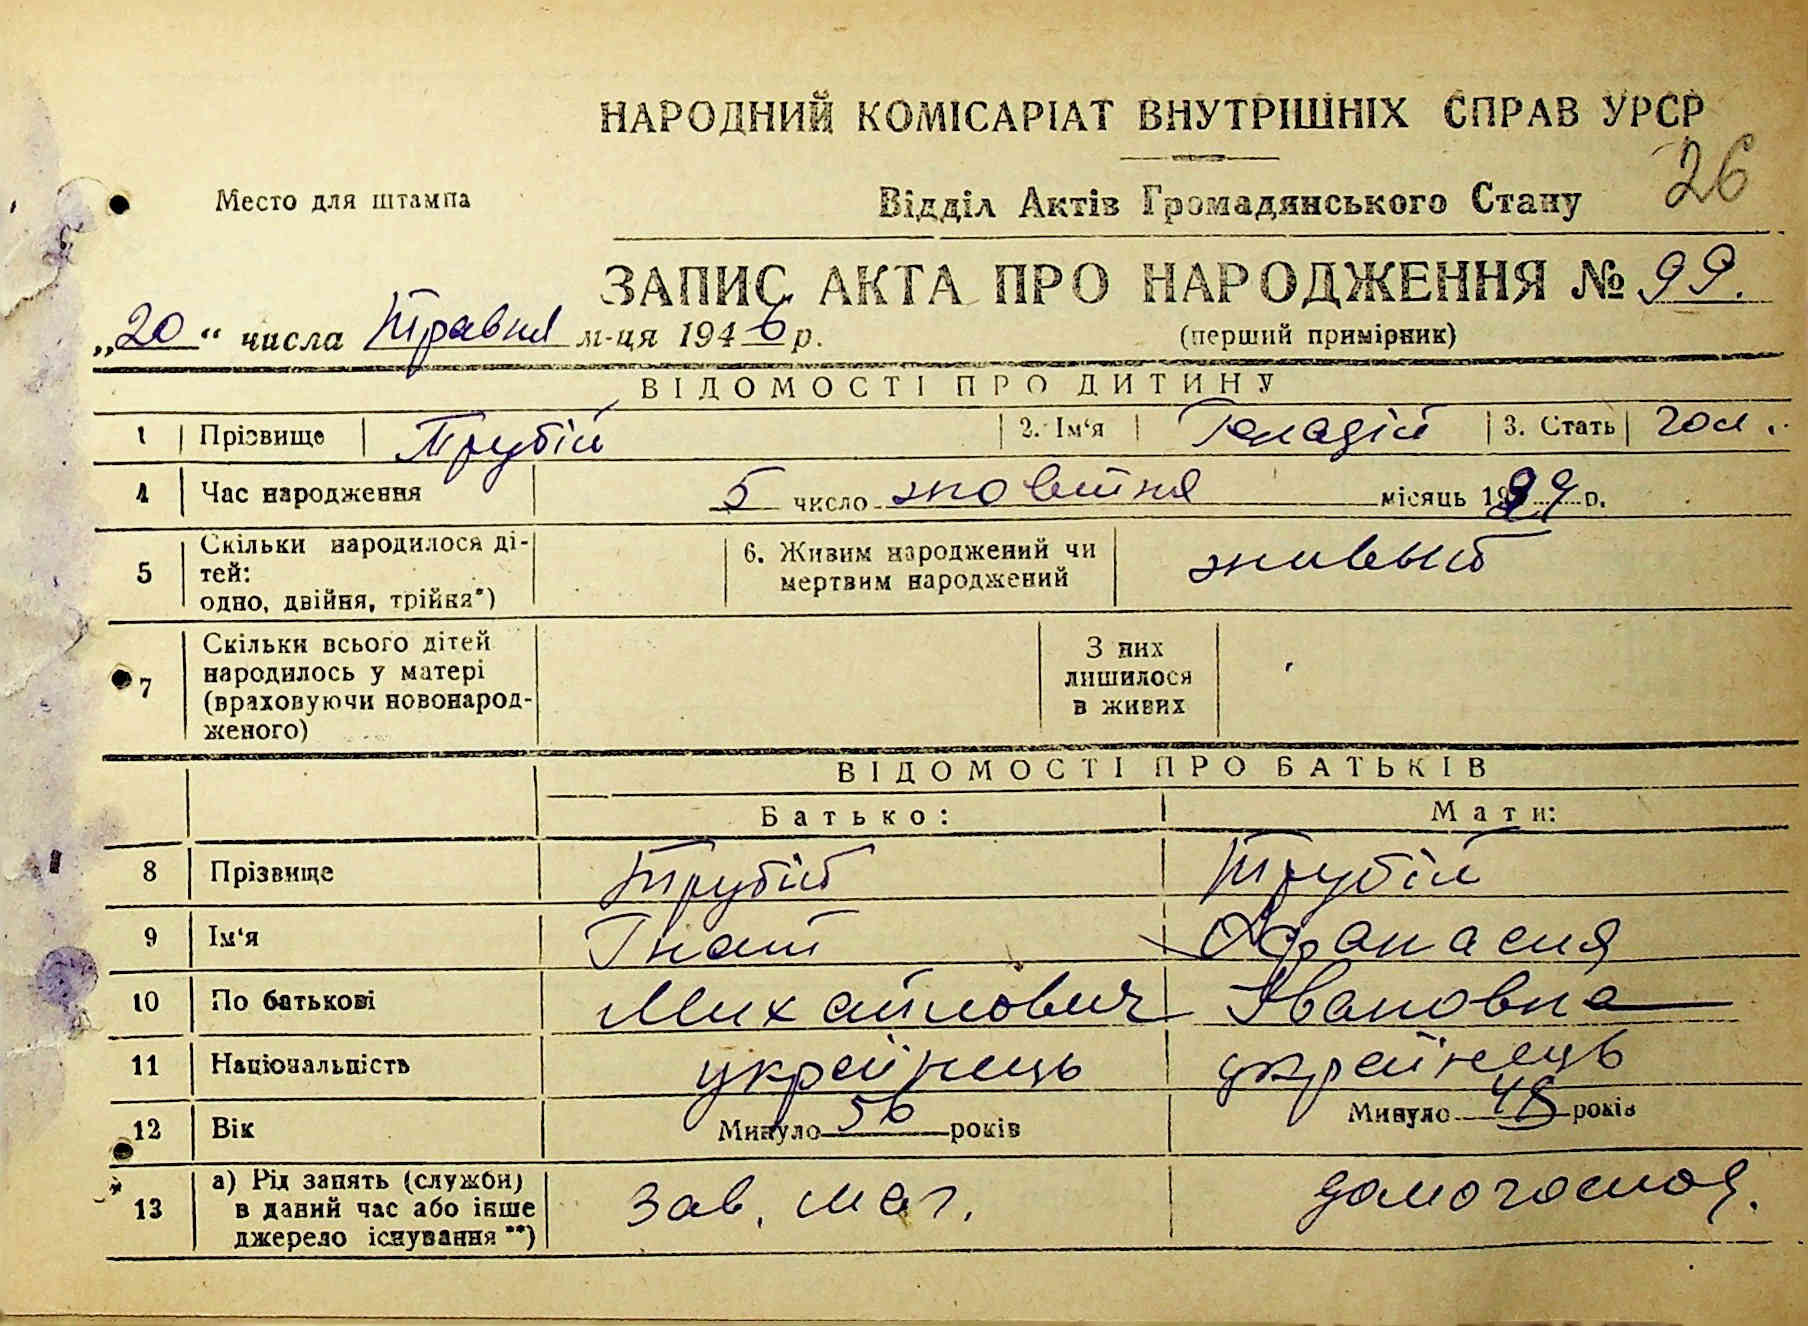 НАРОДНИЙ КОМІСАРІАТ ВНУТРІШНІХ СПРАВ УРСР
26
Место для штампа
Відділ Актів Громадянського Стану
ЗАПИС АКТА ПРО НАРОДЖЕННЯ № 99.
„20“ числа Травня м-ця 1946 р.
(перший примірник)
ВІДОМОСТІ ПРО ДИТИНУ
1 Прізвище Трубій 2. Ім‘я Генадій 3. Стать чол.
4 Час народження 5 число жовтня місяць 19 р.
5 Скільки народилося ді-
тей:
одно, двійня, трійня*)
6. Живим народжений чи
мертвим народжений
живый
7 Скільки всього дітей
народилось у матері
(враховуючи новонарод-
женого)
З них
лишилося
в живих
ВІДОМОСТІ ПРО БАТЬКІВ
Батько: Мати:
8 Прізвище Трубій Трубій
9 Ім‘я Гнат Афанасия
10 По батькові Михайлович Івановна
11 Національність українець українець
12 Вік Минуло 56 років Минуло 48 років
13 а) Рід занять (служби)
в даний час або інше
джерело існування **)
зав. маг. домогоспод.